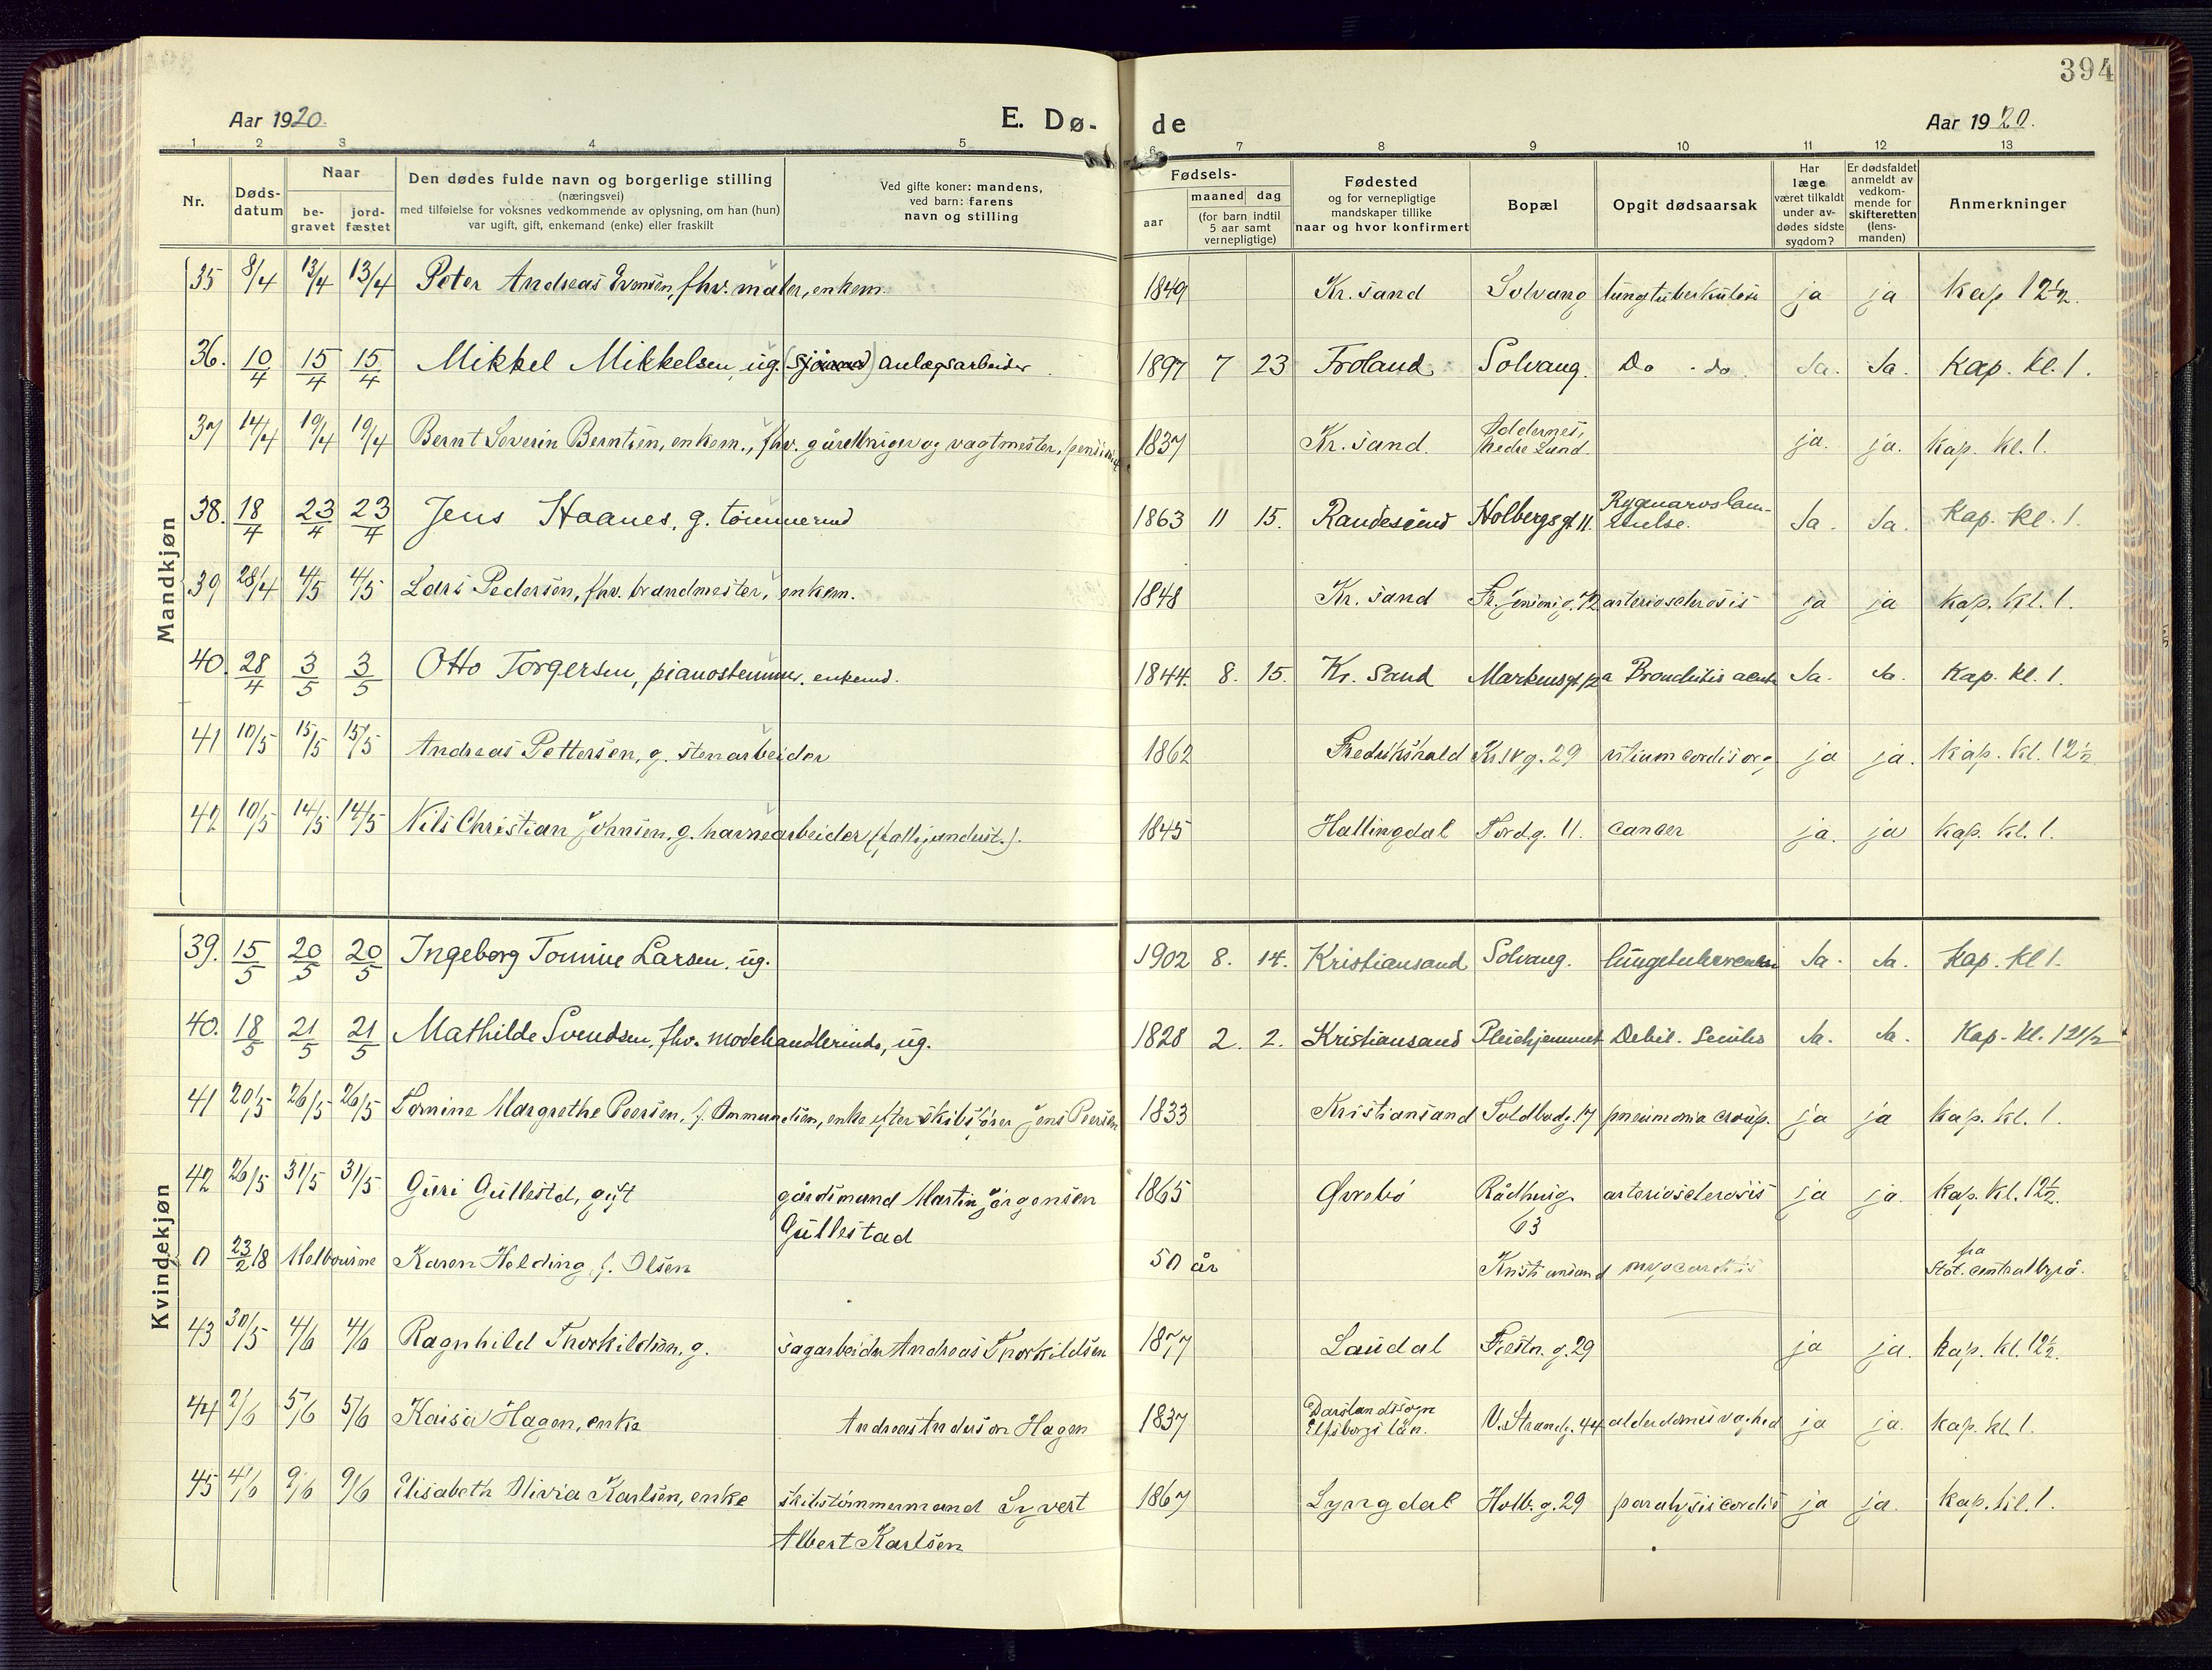 394
Aar 1920.
E. Dø- de
Aar 1920.
1 2 3 4 5 6 7 8 9 10 11 12 13
Nr.
Døds-
datum
Naar
be-
gravet
jord-
fæstet
Den dødes fulde navn og borgerlige stilling
(næringsvei)
med tilføielse for voksnes vedkommende av oplysning, om han (hun)
var ugift, gift, enkemand (enke) eller fraskilt
Ved gifte koner: mandens,
ved barn: farens
navn og stilling
Fødsels-
aar
maaned dag
(for barn indtil
5 aar samt
vernepligtige)
Fødested
og for vernepligtige
mandskaper tillike
naar og hvor konfirmert
Bopæl
Opgit dødsaarsak
Har
læge
været tilkaldt
under av-
dødes sidste
sygdom?
Er dødsfaldet
anmeldt av
vedkom-
mende for
skifteretten
(lens-
manden)
Anmerkninger
Mandkjøn
35 8/4 13/4 13/4 Peter Andreas Evensen, fhv. maler, enkem. 1849 Kr. sand Solvang lungtuberkulose ja ja kap 12½.
36. 10/4 15/4 15/4 Mikkel Mikkelsen, ug. (sjømand) anlægsarbeider 1897 7 23 Froland Solvang. Do - do Ja. Ja. Kap. kl. 1.
37 14/4 19/4 19/4 Bernt Severin Berntsen, enkem., fhv. gårdbruger og vagtmester, 1837 Kr. sand. Oddernes, Nedre Lund. ja. ja. kap. kl. 1.
38. 18/4 23/4 23/4 Jens Haanes, g. tømmermd 1863 11 15. Randesund Holbergsgt 11. Rygmarvslam-
melse. Ja. Ja. Kap. kl. 1.
39 28/4 4/5 4/5 Lars Pedersen, fhv. brandmester, enkem. 1848 Kr. sand arteriosclerosis ja ja kap. kl. 1.
40. 28/4 3/5 3/5 Otto Torgersen, pianostemmer, enkemd. 1844. 8. 15. Kr. Sand Markensgt Bronchitis acuta Ja. Ja. Kap. kl. 1.
41 10/5 15/5 15/5 Andreas Pettersen, g. stenarbeider 1862 Fredrikshald Kr. IV g. 29 vitium cordis org ja ja. kap. kl. 12½
42 10/5 14/5 14/5 Nils Christian Johnsen, g. havnearbeider 1845 Hallingdal Tordg. 11. cancer ja. ja kap. kl. 1.
Kvindekjøn
39. 15/5 20/5 20/5 Ingeborg Tomine Larsen, ug. 1902 8. 14. Kristiansand Solvang. Ja. Ja. Kap. kl 1.
40. 18/5 21/5 21/5 Mathilde Svendsen, fhv. modehandlerinde, ug. 1828 2. 2. Kristiansand Pleiehjemmet Debil. Senilis Ja. Ja. Kap. kl. 12 1/2
41 20/5 26/5 26/5 Tomine Margrethe Peersen, f. Ommundsen, enke efter skibsfører Jens Peersen 1833 Kristiansand Toldbodg. 17 pneumonia croup. ja ja kap. kl. 1.
42 26/5 31/5 31/5 Guri Gullestd, gift gårdsmand Martin Jørgensen 1865 Øvrebø Rådhusg. arteriosclerosis ja ja. kap. kl. 12½.
Gullestad 63
0 23/2 18 Melbourne Karen Holding, f. Olsen 50 år Kristiansand myocarditis fra
Stat. centralbyrå.
43 30/5 4/6 4/6 Ragnhild Thorkildsen, g. sagarbeider Andreas Thorkildsen 1877 Laudal Festn. g. 29 ja ja. kap. kl. 12½.
44 2/6 5/6 5/6 Kaisa Hagen, enke Andreas Anderson Hagen 1837 Elfsborgs län. V. Strandg. 44 alderdomssvaghed ja ja. kap. kl. 1.
45 4/6 9/6 9/6 Elisabeth Olivia Karlsen, enke skibstømmermand Syvert 1867 Lyngdal Holb. g. 29 paralysis cordis ja ja. kap. kl. 1.
Albert Karlsen